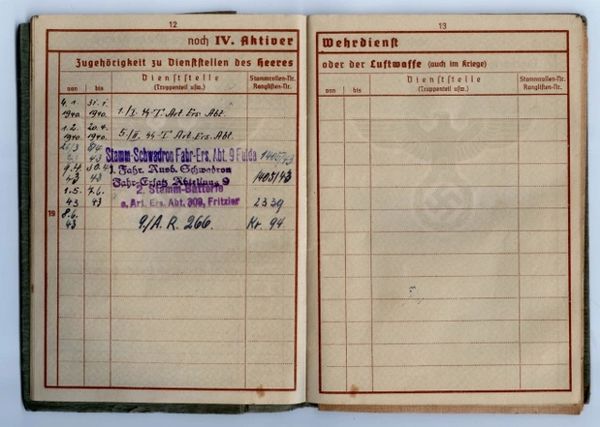 12
noch IV. Aktiver
Zugehörigkeit zu Dienststellen des Heeres
von bis Dienststelle (Truppenteil usw.) Stammrollen-Nr. Ranglisten-Nr.
4.1. 31.1.
1940. 1940. 1./I. ᛋᛋ "T" Art. Ers. Abt.
1.2. 20.4.
1940. 1940. 5./II. ᛋᛋ "T" Art. Ers. Abt.
Stamm-Schwadron Fahr-Ers. Abt. 9 Fulda 1405/43
43
1. Fahr. Ausb. Schwadron
43 43 Fahr-Ersatz Abteilung 9 1405/43
1.5. 7.6. 2. Stamm-Batterie
43 43 Art. Ers. Abt. 309, Fritzlar 2339
19
8.6.
43 9./A. R. 266. Kr. 94
13
Wehrdienst
oder der Luftwaffe (auch im Kriege)
von bis Dienststelle (Truppenteil usw.) Stammrollen-Nr. Ranglisten-Nr.